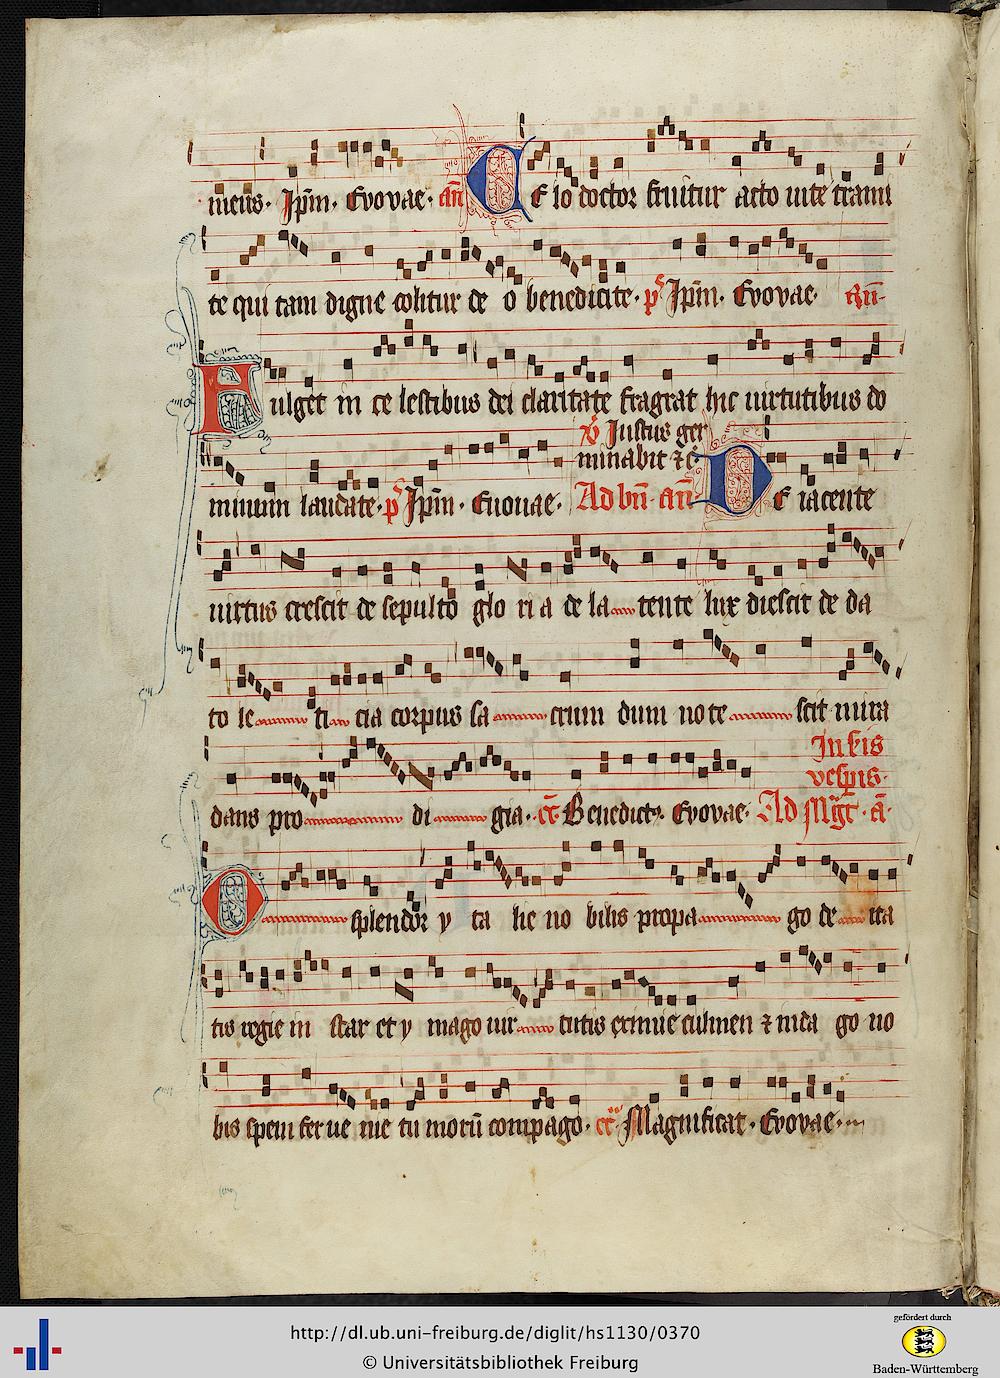 meus. Ip̄m. Evovae. an̄ C E lo doctor fruitur acto uite trami
te qui tam digne colitur de o benedicite. p̄s Ip̄m. Evovae. an̄
F ulget in ce lestibus dei claritate fragrat hic uirtutibus do
v̄ Justus ger
minabit ⁊ c̄
minum laudate. p̄s Ip̄m. Euouae. Ad bn̄. an̄ D E iacente
uirtus crescit de sepulto glo ri a de la tente lux diescit de da
to le ti cia corpus sa crum dum no te scit mira
In secundis
vesp̄is.
dans pro di gia. Benedictus. Evovae. Ad Mag̅t. a̅
O splendor y ta lie no bilis propa go de ita
tis regie in star et y mago uir tutis eximie culmen ⁊ ima go no
bis spem fer ue nie tu morū compago. Magnificat. Evovae.
http://dl.ub.uni-freiburg.de/diglit/hs1130/0370
© Universitätsbibliothek Freiburg
gefördert durch
Baden-Württemberg